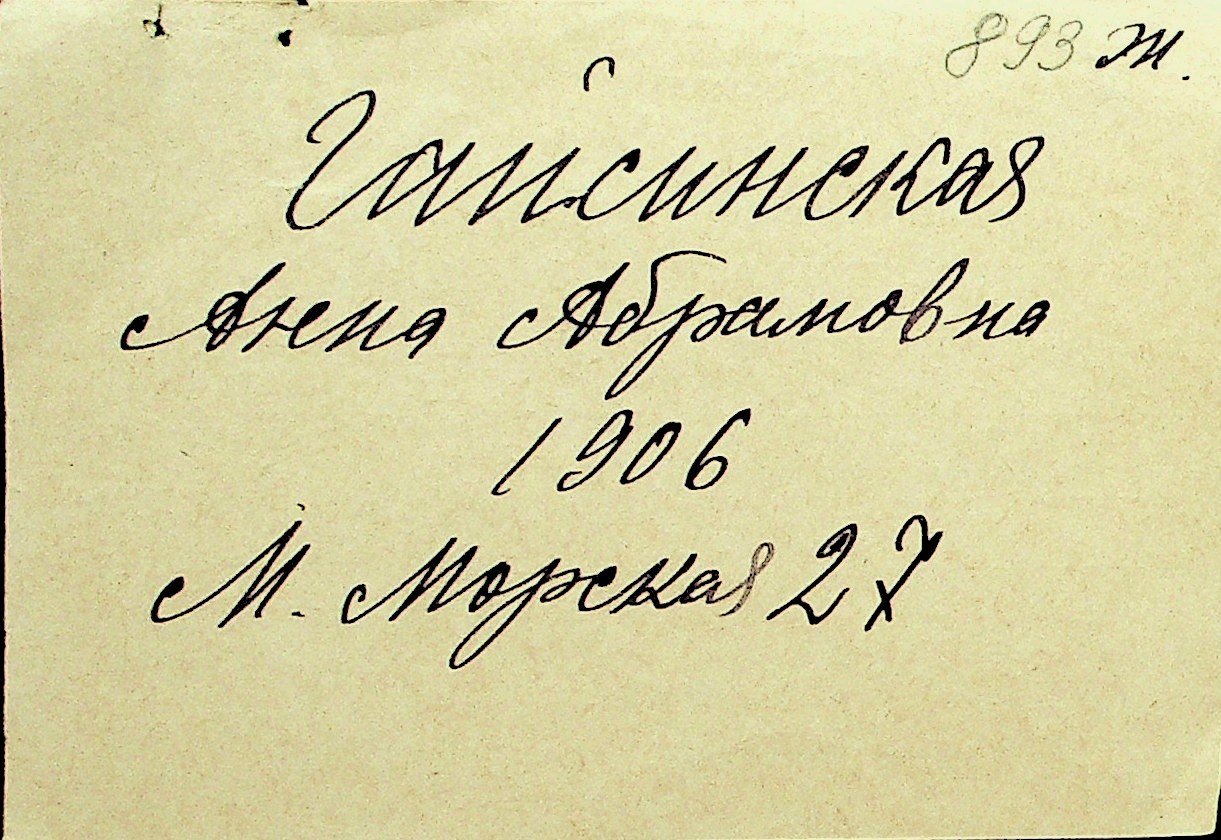 893 ж.
Гайсинская
Анна Абрамовна
1906
М. Морская 27